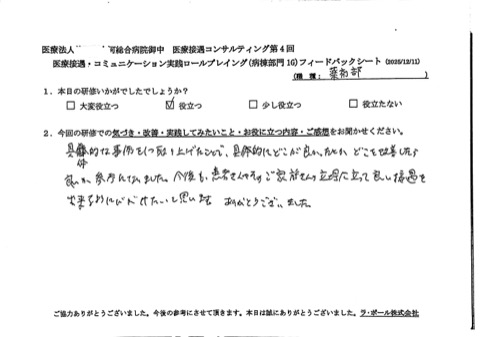 医療法人 総合病院御中 医療接遇コンサルティング第4回
医療接遇・コミュニケーション実践ロールプレイング(病棟部門16)フィードバックシート (2025/12/11)
(職 種: 薬剤部 )
1.本日の研修いかがでしたでしょうか?
□ 大変役立つ ☑ 役立つ □ 少し役立つ □ 役立たない
2.今回の研修での気づき・改善・実践してみたいこと・お役に立つ内容・ご感想をお聞かせください。
具体的な事例を 取り上げたことで、具体的にどこが良かったか、どこを改善したら
良いか、参考になりました。今後も、患者さんやそのご家族さんの立場に立って良い接遇を
出来るように したいと思います ありがとうございました。
ご協力ありがとうございました。今後の参考にさせて頂きます。本日は誠にありがとうございました。ラ・ポール株式会社